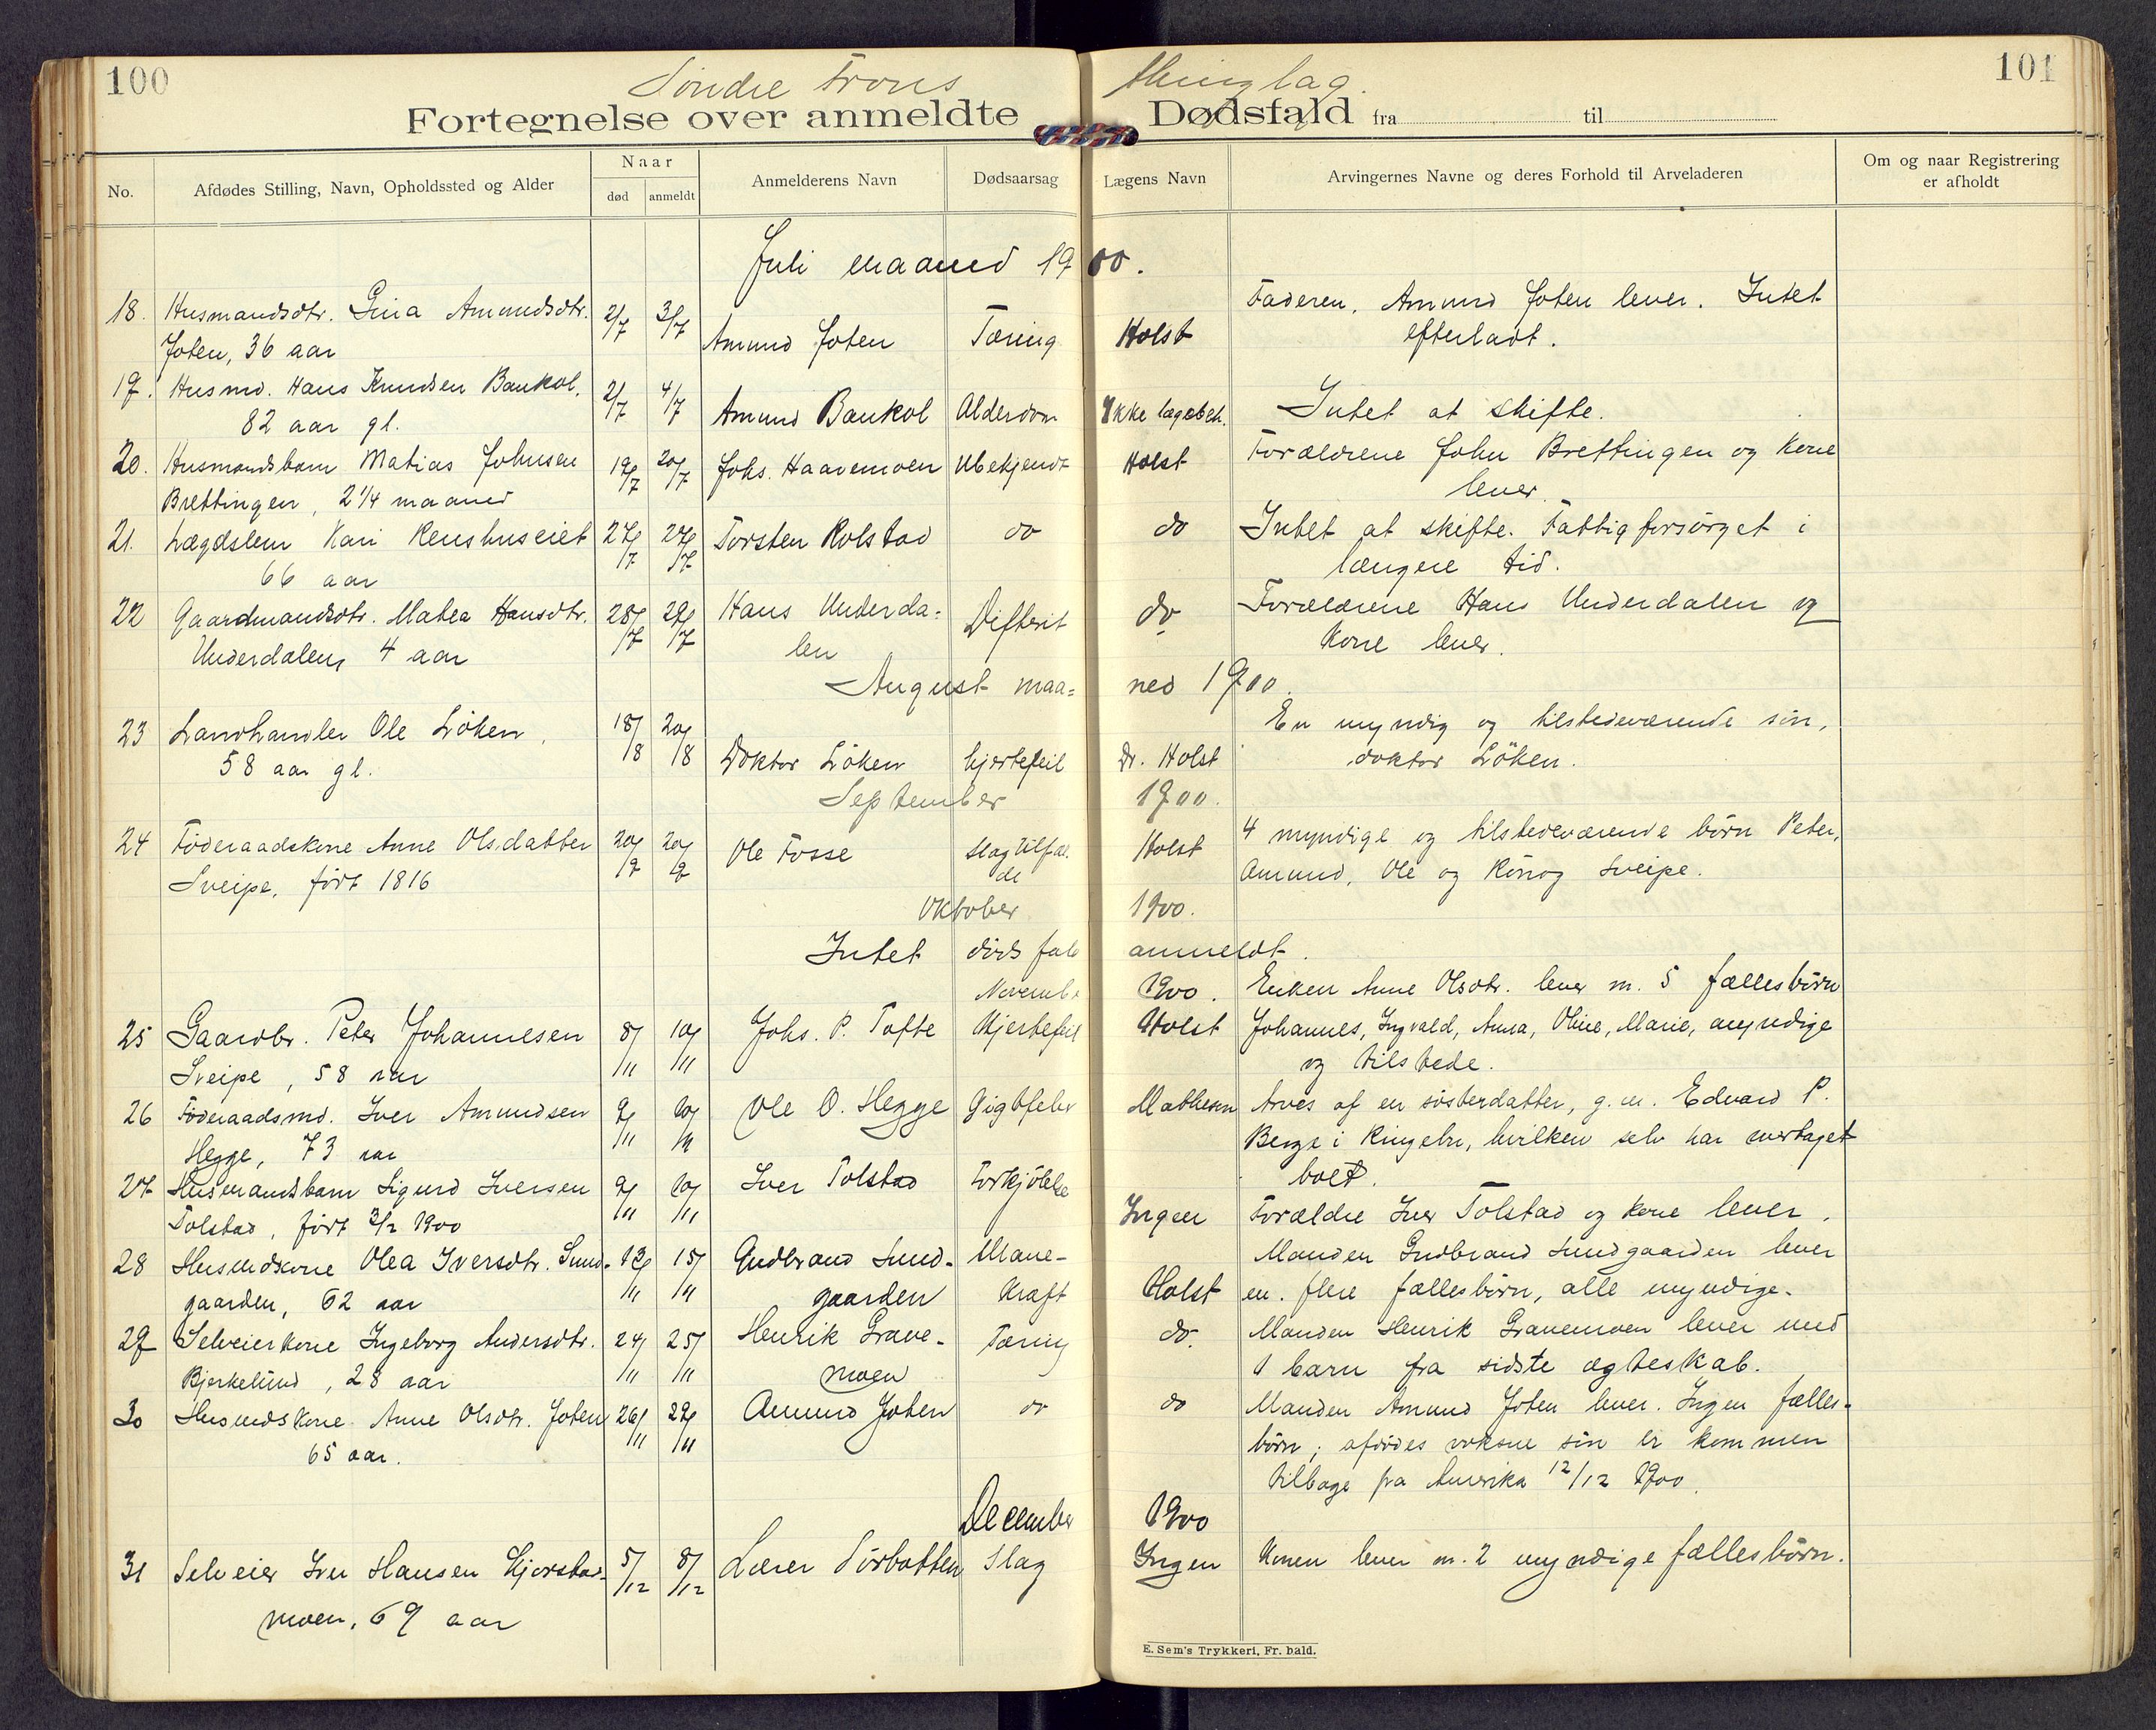 100
Søndre Frons
thinglag.
101
Fortegnelse over anmeldte Dødsfald fra til
No.
Afdødes Stilling, Navn, Opholdssted og Alder
Naar
død
anmeldt
Anmelderens Navn
Dødsaarsag
Lægens Navn
Arvingernes Navne og deres Forhold til Arveladeren
Om og naar Registrering
er afholdt
Juli maaned 1900.
18. Husmandsdtr. Gina Amundsdtr. 2/7 3/7 Amund Joten Tæring Holst Faderen, Amund Joten lever. Intet
Joten, 36 aar efterladt.
19. Husmd. Hans Knudsen Baukol, 2/7 4/7 Amund Baukol Alderdom Ikke lægebeh. Intet at skifte.
82 aar gl.
20. Husmandsbarn Matias Johnsen 19/7 20/7 Johs. Haavemoen Ubekjendt Holst Forældrene John Brettingen og kone
Brettingen, 2 1/4 maaned lever.
21. Lægdslem Kari Renshuseiet 27/7 27/7 Torsten Kolstad do do Intet at skifte. Fattigforsørget i
66 aar længere tid.
22 Gaardmandsdtr. Matea Hansdtr. 28/7 29/7 Hans Underda= Difterit do Forældrene Hans Underdalen og
Underdalen, 4 aar len kone lever.
August maa= ned 1900.
23 Landhandler Ole Löken, 18/8 20/8 Doktor Löken hjertefeil Dr. Holst En myndig og tilstedeværende søn,
58 aar gl. doktor Löken.
September 1900.
24 Föderaadskone Anne Olsdatter 20/9 20/9 Ole Fosse Slagtilfæl. Holst 4 myndige og tilstedeværende börn Peter,
Sveipe, født 1816 de Amund, Ole og Rönog Sveipe.
Oktober 1900.
Intet dödsfald anmeldt.
November 1900. Enken Anne Olsdtr. lever m. 5 fællesbörn
25 Gaardbr. Peter Johannesen 8/11 10/11 Johs. P. Tofte Hjertefeil Holst Johannes, Ingvald, Anna, Oline, Marie, myndige
Sveipe, 58 aar og tilstede.
26 Föderaadsmd. Iver Amundsen 9/11 10/11 Ole O. Hegge Gigtfeber Mathesen Arves af en søsterdatter, g. m. Edvard P.
Hegge, 73 aar Berge i Ringebu, hvilken selv har overtaget
boet.
27 Husmandsbarn Sigurd Iversen 9/11 10/11 Iver Tolstad Forkjölelse Ingen Forældre Iver Tolstad og kone lever.
Tolstad, født 3/2 1900
28 Husmdskone Olea Iversdtr. Sund- 13/11 15/11 Gudbrand Sund- Mave- Holst Manden Gudbrand Sundgaarden lever
gaarden, 62 aar gaarden kræft m. flere fællesbörn, alle myndige.
29 Selveierkone Ingeborg Andersdtr. 24/11 25/11 Henrik Grave- Tæring do. Manden Henrik Gravemoen lever med
Bjerkelund, 28 aar moen 1 barn fra sidste ægteskab.
30 Husmdskone Anne Olsdtr. Joten 26/11 29/11 Amund Joten do do Manden Amund Joten lever. Ingen fælles-
65 aar. börn; afdødes voksne sön er kommen
tilbage fra Amerika 12/12 1900.
December 1900
31 Selveier Iver Hansen Kjorstad- 5/12 8/12 Lærer Sörbotten Slag Ingen Konen lever m. 2 myndige fællesbörn.
moen, 69 aar
E. Sem's Trykkeri, Fr.hald.